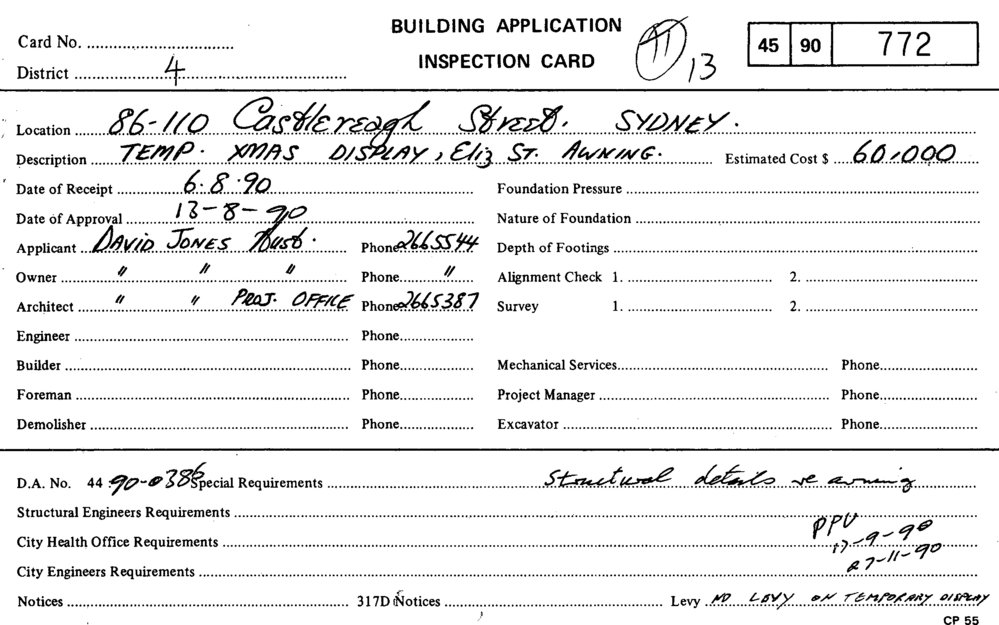 BUILDING APPLICATION
INSPECTION CARD
Card No.
District 4
11 13
45 90 772
Location 86-110 Castlereagh Street. SYDNEY.
Description TEMP. XMAS DISPLAY, Eliz ST. AWNING. Estimated Cost $ 60,000
Date of Receipt 6.8.90 Foundation Pressure
Date of Approval 13-8-90 Nature of Foundation
Applicant DAVID JONES Aust. Phone 2665544 Depth of Footings
Owner " " " Phone " Alignment Check 1. 2.
Architect " " PROJ. OFFICE Phone 2665387 Survey 1. 2.
Engineer Phone
Builder Phone Mechanical Services Phone
Foreman Phone Project Manager Phone
Demolisher Phone Excavator Phone
D.A. No. 44 90-0386 Special Requirements Structural details re awning
Structural Engineers Requirements
PPU
City Health Office Requirements 17-9-90
27-11-90
City Engineers Requirements
Notices 317D Notices Levy NO LEVY ON TEMPORARY DISPLAY
CP 55